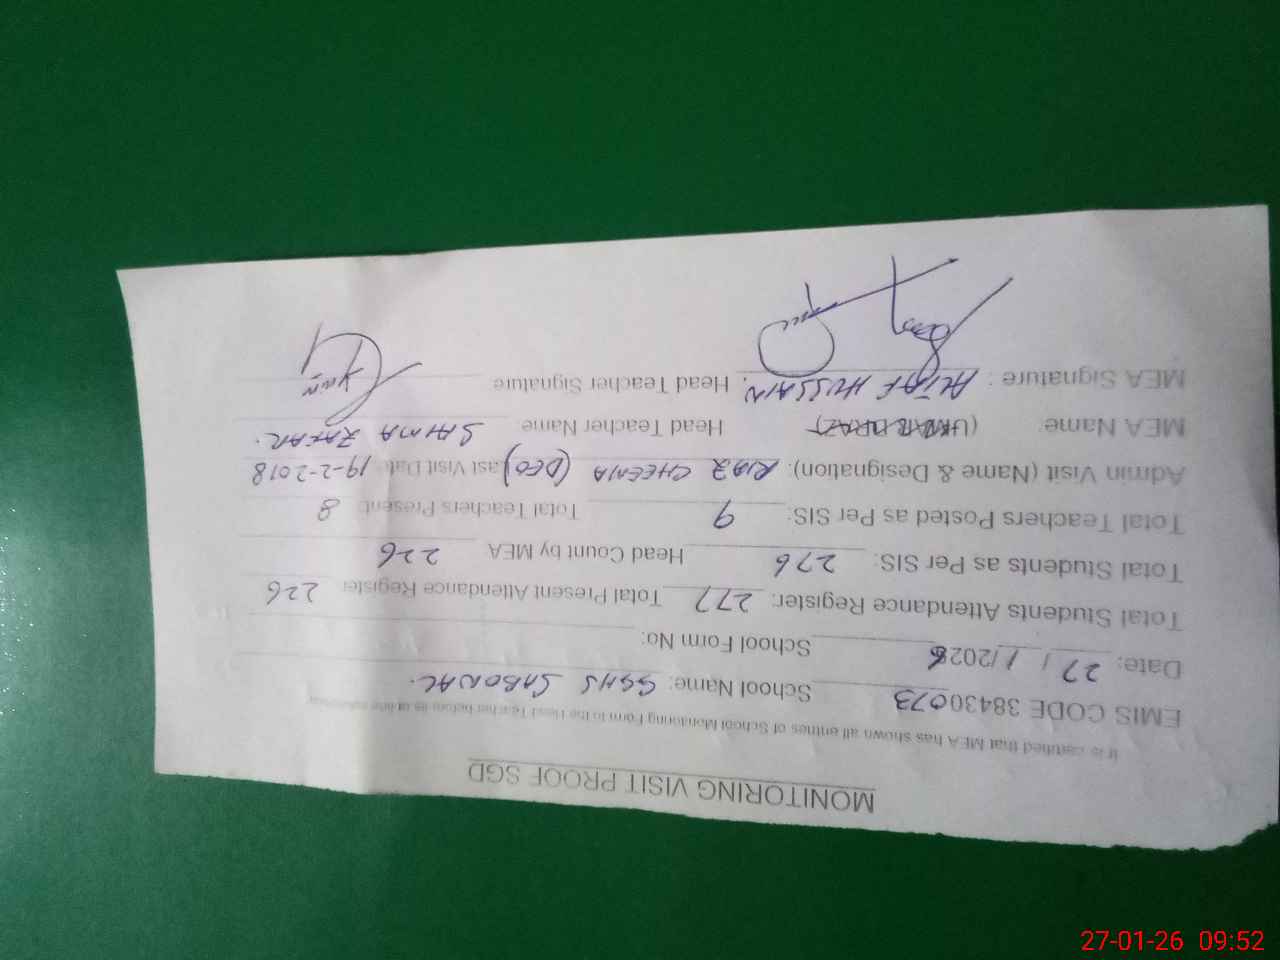 MONITORING VISIT PROOF SGD
It is certified that MEA has shown all entries of School Monitoring Form to the Head Teacher before its online
EMIS CODE 38430073 School Name: GGHS SABOWAL.
Date: 27 / 1 /2026 School Form No:
Total Students Attendance Register: 277 Total Present Attendance Register 226
Total Students as Per SIS: 276 Head Count by MEA 226
Total Teachers Posted as Per SIS: 9 Total Teachers Present: 8
Admin Visit (Name & Designation): RIAZ CHEEMA (DEO) Last Visit Date 19-2-2018
MEA Name: (UMAR DRAZ) Head Teacher Name: SAIMA ZAFAR.
MEA Signature : ALTAF HUSSAIN. Head Teacher Signature
27-01-26 09:52